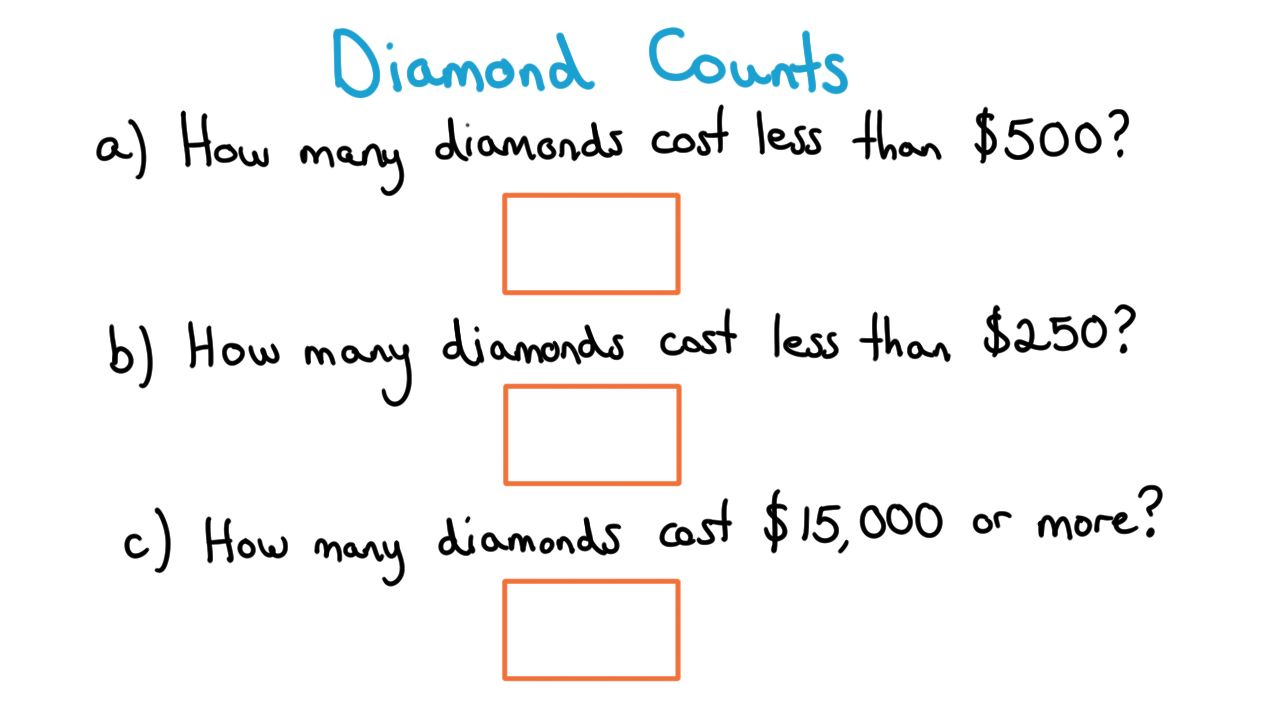 Diamond Counts
a) How many diamonds cost less than $500?
b) How many diamonds cost less than $250?
c) How many diamonds cost $15,000 or more?